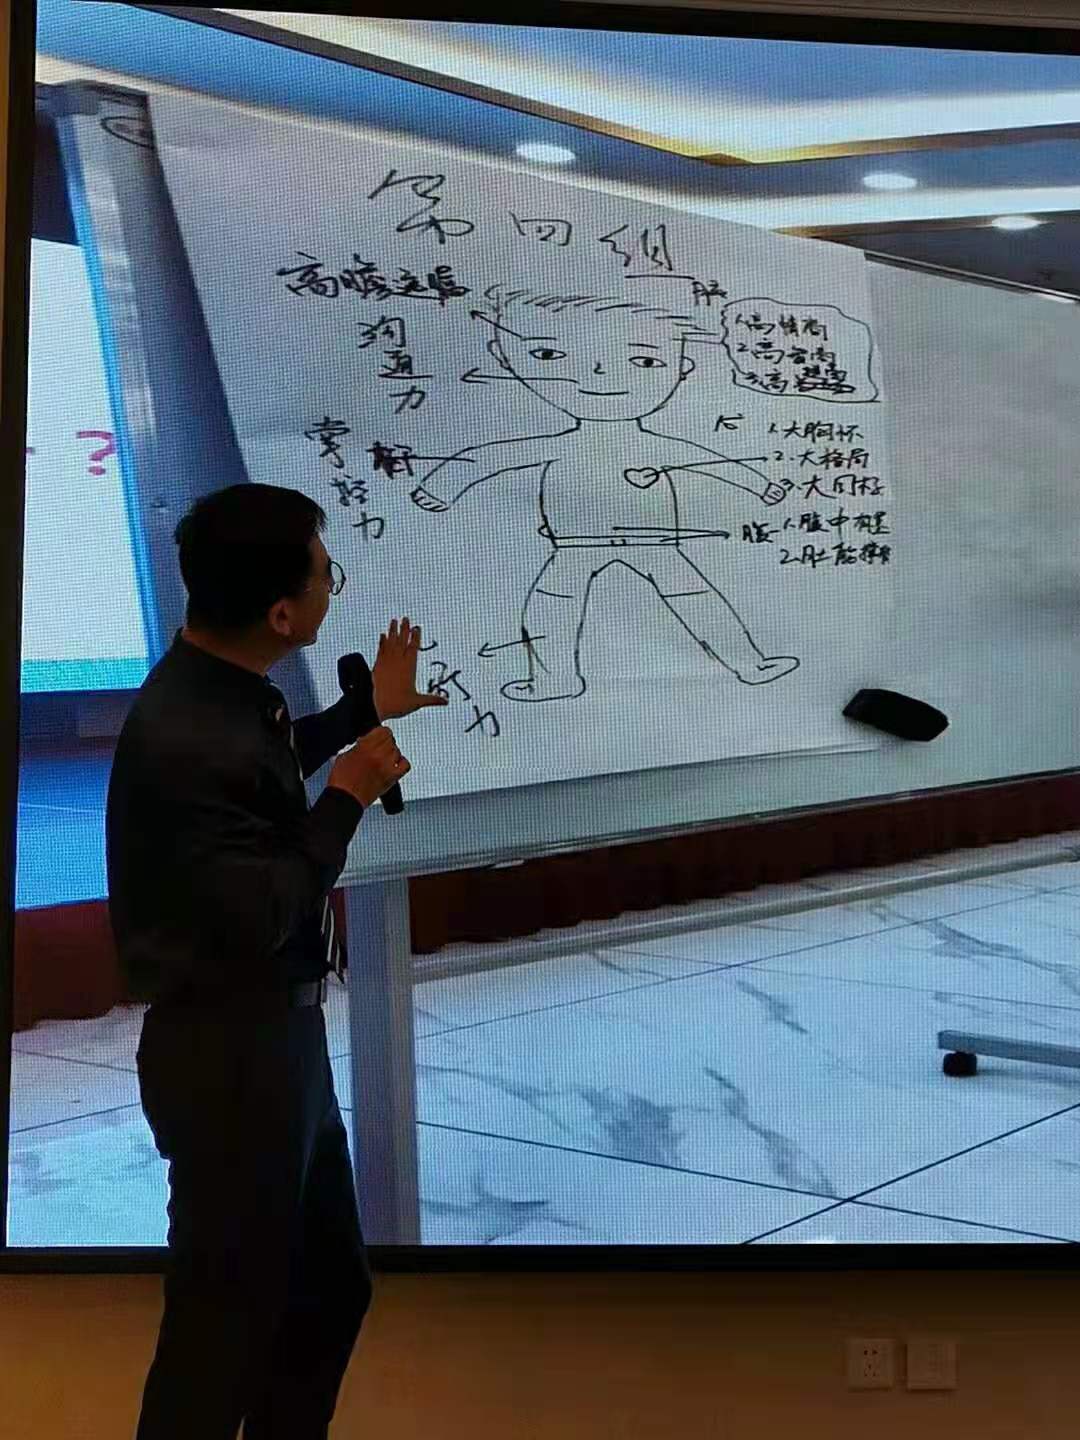 ?
第四组
高瞻远瞩
沟通力
脑
1.高情商
2.高智商
3.高
掌控力
心
1.大胸怀
2.大格局
3.大目标
腹
1.腹中有墨
2.肚能撑船
行力